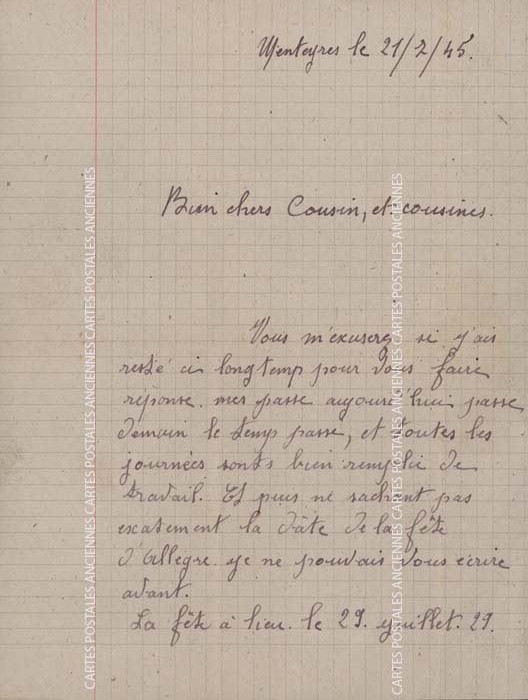 Menteyres le 21/7/45.
Bien chers Cousin, et cousines.
Vous m'excuserez si j'ais
resté ci longtemp pour vous faire
réponse. mes passe aujourd'hui passe
demain le temp passe, et toutes les
journées sonts bien remplie de
travail. Et puis ne sachent pas
exatement la dâte de la fête
d'Allègre. je ne pouvais vous écrire
avant.
La fête à lieu. le 29. juillet. 29.
CARTES POSTALES ANCIENNES CARTES POSTALES ANCIENNES CARTES POSTALES ANCIENNES
CARTES POSTALES ANCIENNES CARTES POSTALES ANCIENNES CARTES POSTALES ANCIENNES